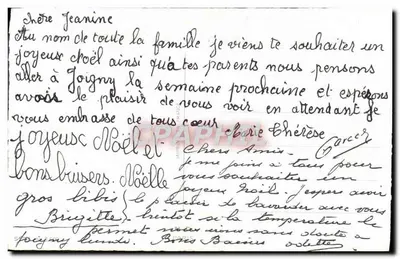 Chère Jeanine
Au nom de toute la famille je viens te souhaiter un
joyeux Noël ainsi qu'à tes parents nous pensons
aller à Joigny la semaine prochaine et espérons
avoir le plaisir de vous voir en attendant je
vous embrasse de tous cœur Marie Thérèse
joyeux Noël et
Bons baisers. Noëlle
gros bibis
Brigitte
Chers Amis.
je me joins à tous pour
vous souhaiter un
joyeux Noël. J'espère avoir
le plaisir de bavarder avec vous
bientôt si la température le
permet nous irons sans doute à
Joigny lundi. Bons Baisers
Odette